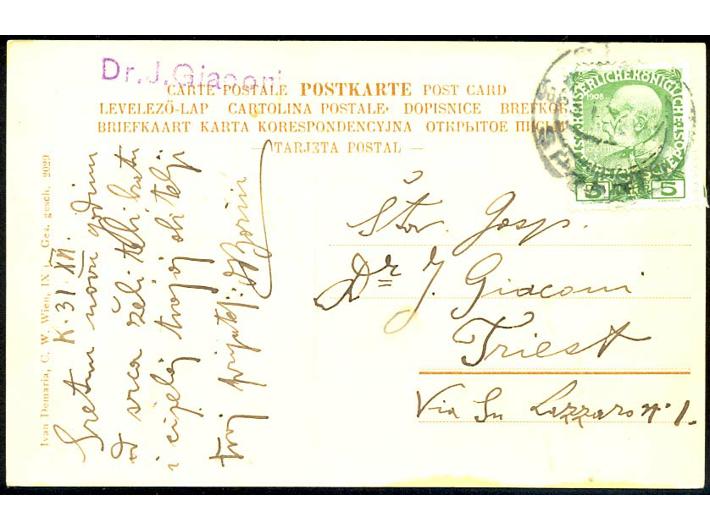 Dr. J. Giaconi
CARTE POSTALE POSTKARTE POST CARD
LEVELEZŐ-LAP CARTOLINA POSTALE· DOPISNICE BREFKOR
BRIEFKAART KARTA KORESPONDENCYJNA ОТКРЫТОЕ ПИ
— TARJETA POSTAL —
KAISERLICHE KÖNIGLICHE ÖSTERR
1908
5 5
Štov. Gosp.
Dr J. Giaconi
Triest
Via Sn Lazzaro nº 1.
K. 31 XII.
Sretnu novu godinu
od srca želi tebi
i cijeloj tvojoj obitelji
tvoj prijatelj:
Ivan Demaria, C. W. Wien, IX Ges. gesch. 2029